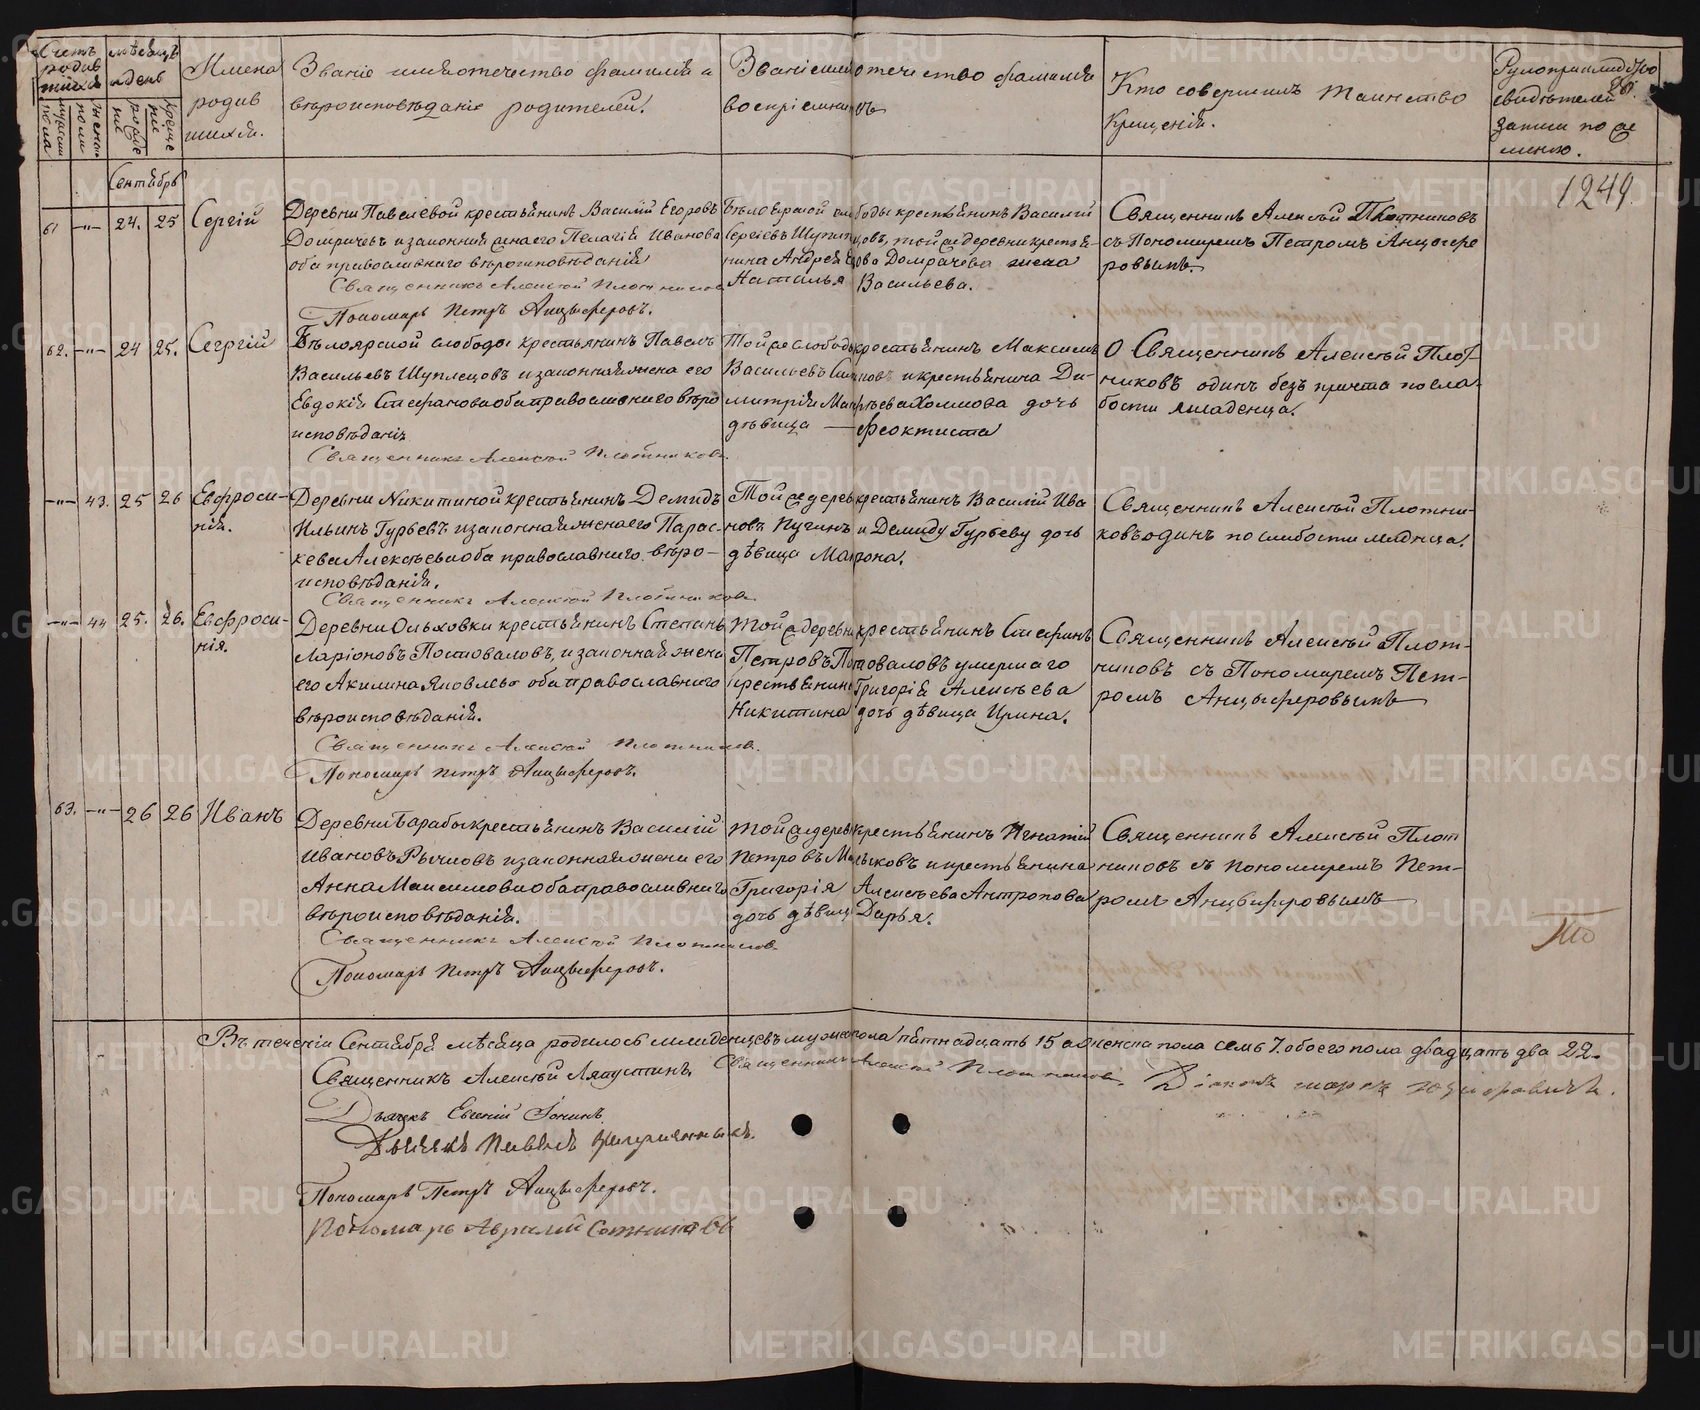 Счетъ родившихся
мѣсяцъ и день
Имена родившихся.
Званіе имя отечество фамилія и вѣроисповѣданіе родителей.
Званіе имя отечество фамилія воспріемниковъ
Кто совершилъ таинство Крещенія.
Рукоприкладство свидѣтелей записи по желанію.
мужеска пола
женска пола
рожденія
крещенія
Сентябрь
1249.
61 —"— 24. 25 Сергій
Деревни Павелевой крестьянинъ Василій Егоровъ
Домрачевъ и законная жена его Пелагія Иванова
оба православнаго вѣроисповѣданія
Священникъ Алексѣй Плотниковъ
Пономарь Петръ Анцыферовъ.
Бѣлоярской слободы крестьянинъ Василій
Сергѣевъ Шуплецовъ, той же деревни крестья-
нина Андрея Егорова Домрачева жена
Наталья Васильева.
Священникъ Алексѣй Плотниковъ
съ Пономаремъ Петромъ Анцыфе-
ровымъ.
62. —"— 24 25. Сергій
Бѣлоярской слободы крестьянинъ Павелъ
Васильевъ Шуплецовъ и законная жена его
Евдокія Стефанова оба православнаго вѣро
исповѣданія
Священникъ Алексѣй Плотниковъ.
Той же слободы крестьянинъ Максимъ
Васильевъ и крестьянина Ди-
митрія Хомикова дочь
дѣвица — Феоктиста
Священникъ Алексѣй Плот-
никовъ одинъ безъ причта по сла-
бости младенца.
—"— 43. 25 26 Евфроси-
нія.
Деревни Никитиной крестьянинъ Демидъ
Ильинъ Гурьевъ и законная жена его Парас-
кева Алексѣева оба православнаго вѣро-
исповѣданія.
Священникъ Алексѣй Плотниковъ
Той же дерев. крестьянинъ Василій Ива
новъ Пугинъ и Демиду Гурьеву дочь
дѣвица Матрона.
Священникъ Алексѣй Плотни-
ковъ одинъ по слабости младенца.
—"— 44 25. 26. Евфроси-
нія.
Деревни Ольховки крестьянинъ Степанъ
Ларіоновъ Постоваловъ, и законная жена
его Акилина Яковлева оба православнаго
вѣроисповѣданія.
Священникъ Алексѣй Плотниковъ.
Пономарь Петръ Анцыферовъ.
Той же деревни крестьянинъ Стефанъ
Петровъ Постоваловъ умершаго
крестьянина Григорія Алексѣева
Никитина дочь дѣвица Ирина.
Священникъ Алексѣй Плот-
никовъ съ Пономаремъ Пет-
ромъ Анцыферовымъ
63. —"— 26 26 Иванъ
Деревни Барабы крестьянинъ Василій
Ивановъ Рычковъ и законная жена его
Анна Максимова оба православнаго
вѣроисповѣданія.
Священникъ Алексѣй Плотниковъ.
Пономарь Петръ Анцыферовъ.
Той же дерев. крестьянинъ Игнатій
Петровъ и крестьянина
Григорія Алексѣева Антропова
дочь дѣвица Дарья.
Священникъ Алексѣй Плот
никовъ съ Пономаремъ Пет-
ромъ Анцыферовымъ
Въ теченіи Сентября мѣсяца родилось младенцевъ мужеска пола пятнадцать 15 а женска пола семь 7. обоего пола двадцать два 22.
Священникъ Алексѣй Ляпустинъ. Священникъ Алексѣй Плотниковъ.
Дьячекъ Евгеній Іонинъ
Дьячекъ Павелъ
Пономарь Петръ Анцыферовъ.
Пономарь Сотниковъ
METRIKI.GASO-URAL.RU